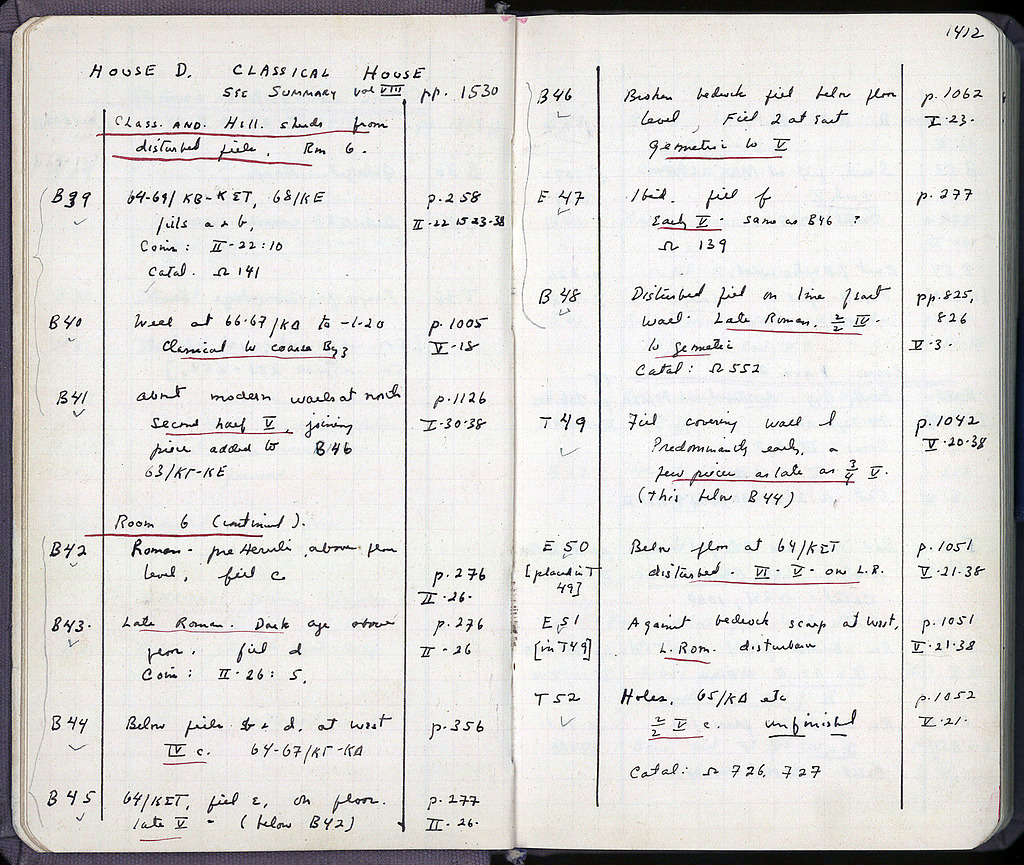 HOUSE D. CLASSICAL HOUSE
SEE SUMMARY vol VIII pp. 1530
Class. and. Hell. sherds from
disturbed fills, Rm 6.
B39 64-69/KD-KET, 68/KE p. 258
fills a & b, II-22 15-23-38
Coin: II-22:10
Catal. Ω 141
B40 Well at 66-67/KD to -1.20 p. 1005
Classical to coarse Byz V-18
B41 about modern walls at north p. 1126
second half V, joining I-30-38
piece added to B46
63/KΓ-KE
Room 6 (continued).
B42 Roman - pre Heruli, above floor
level, fill c p. 276
II-26.
B43. Late Roman. Dark age above p. 276
floor, fill d II-26
Coin: II-26:5.
B44 Below fills & d, at west p. 356
IV c. 64-67/KΓ-KΔ
B45 64/KET, fill e, on floor. p. 277
late V - (below B42) II-26.
1412
B46 Broken bedrock fill below floor p. 1062
level, Fill 2 at east V-23.
geometric to V
E 47 Ibid, fill f p. 277
Early V - same as B46 ?
Ω 139
B 48 Disturbed fill on line of east pp. 825,
wall. Late Roman, 2/2 IV - 826
to geometric V-3.
Catal: Ω 552
T 49 Fill covering wall l p. 1042
Predominantly early, a V-20-38
few pieces as late as 3/4 V.
(this below B44)
E 50 Below floor at 64/KET p. 1051
[placed in T disturbed - VI - V - one L.R. V-21-38
49]
E 51 Against bedrock scarp at west, p. 1051
[in T49] L. Rom. disturbance V-21-38
T 52 Holes, 65/KΔ etc p. 1052
2/2 V c. unfinished V-21.
Catal: Ω 726, 727